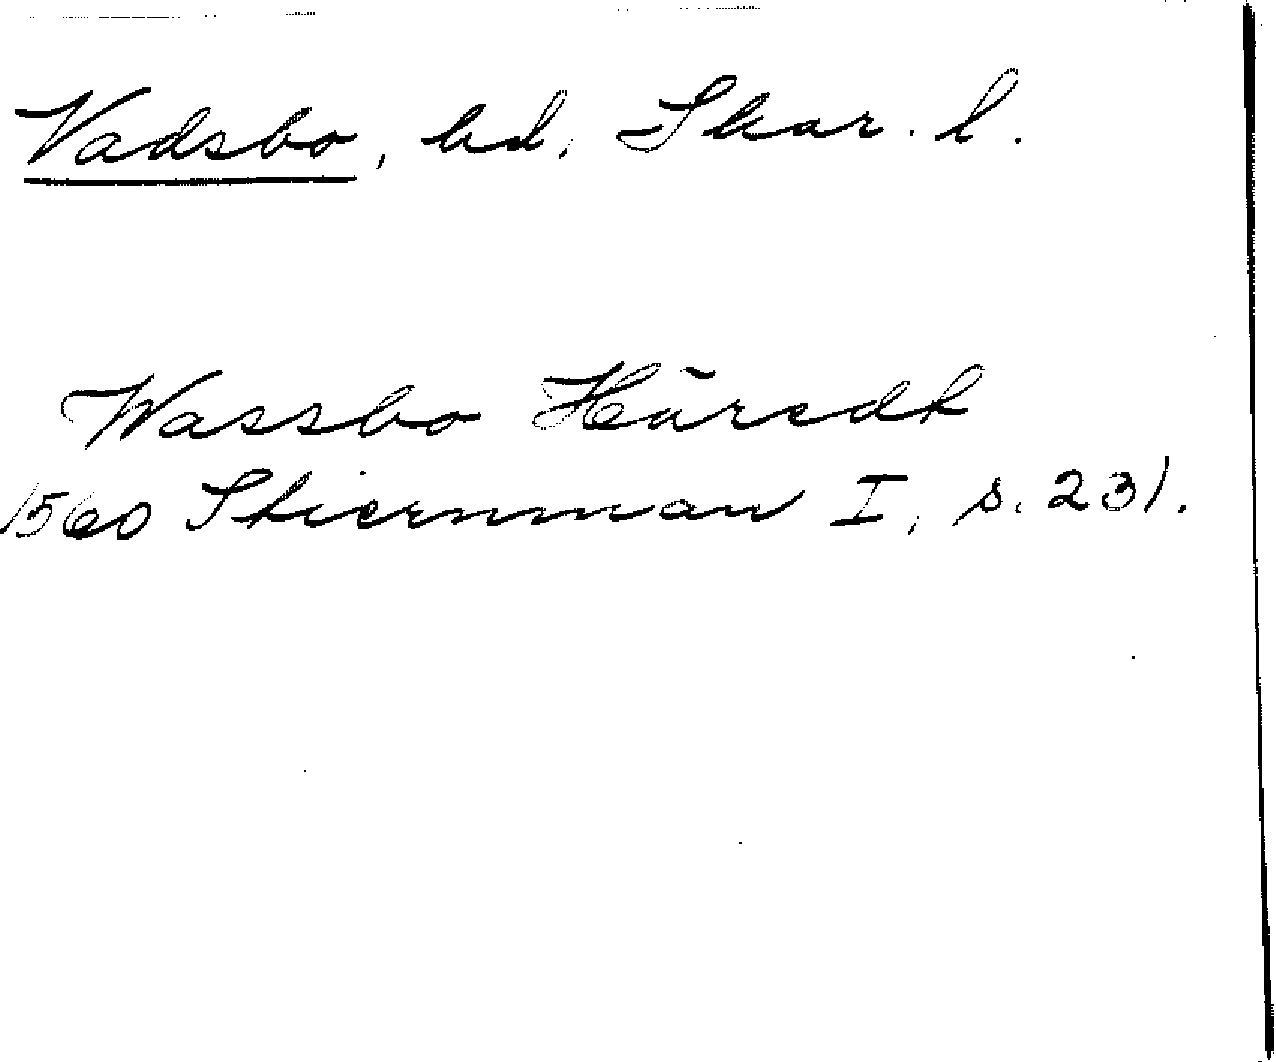 Vadsbo, hd, Skar. l.
Wassbo Häredt
1560 Stiernman I, s. 231.